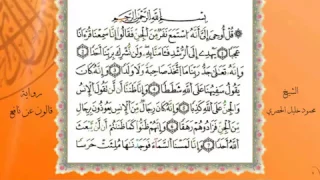 بِسْمِ اِ۬للَّهِ اِ۬لرَّحْمَٰنِ اِ۬لرَّحِيمِ
قُلُ اوحِيَ إِلَيَّ أَنَّهُ اُ۪سْتَمَعَ نَفَرٌ مِّنَ اَ۬لْجِنِّ فَقَالُوٓاْ إِنَّا سَمِعْنَا قُرْءَاناً
عَجَباً يَهْدِےٓ إِلَى اَ۬لرُّشْدِ فَـَٔامَنَّا بِهِۦ وَلَن نُّشْرِكَ بِرَبِّنَآ أَحَداً
وَإِنَّهُۥ تَعَٰلَىٰ جَدُّ رَبِّنَا مَا اَ۪تَّخَذَ صَٰحِبَةً وَلَا وَلَداً وَإِنَّهُۥ كَانَ
يَقُولُ سَفِيهُنَا عَلَى اَ۬للَّهِ شَطَطاً وَإِنَّا ظَنَنَّآ أَن لَّن تَقُولَ اَ۬لِانسُ
وَالْجِنُّ عَلَى اَ۬للَّهِ كَذِباً وَإِنَّهُۥ كَانَ رِجَالٌ مِّنَ اَ۬لِانسِ يَعُوذُونَ بِرِجَالٍ
مِّنَ اَ۬لْجِنِّ فَزَادُوهُمْ رَهَقاً وَإِنَّهُمْ ظَنُّواْ كَمَا ظَنَنتُمُۥٓ أَن لَّن يَّبْعَثَ
اَ۬للَّهُ أَحَداً وَإِنَّا لَمَسْنَا اَ۬لسَّمَآءَ فَوَجَدْنَٰهَا مُلِئَتْ حَرَساً
الشيخ
محمود خليل الحصري
رواية
قالون عن نافع